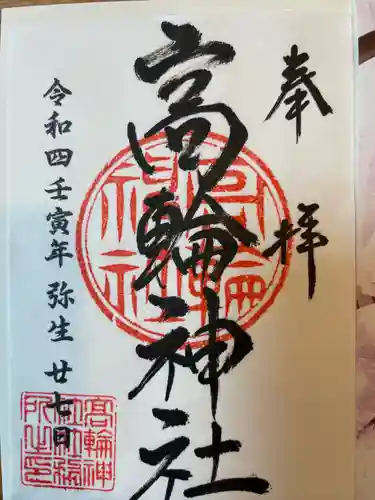 奉拝
高輪神社
令和四壬寅年 弥生 廿七日
高輪神社
高輪神
社社務
所之印